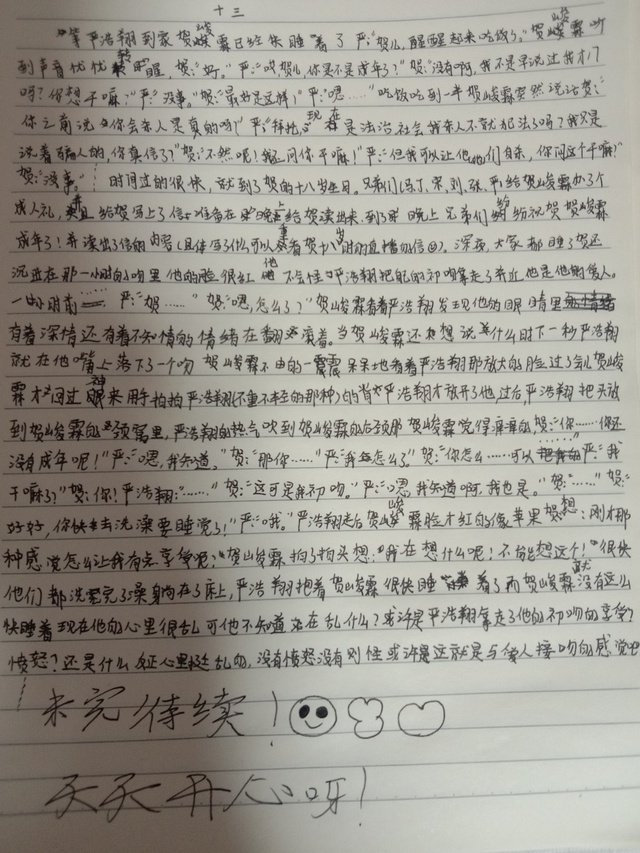 十三
等严浩翔到家贺峻霖已经快睡着了严:"贺儿,醒醒起来吃饭了。"贺峻霖听
到声音忧忧转醒,贺:"好。"严:"哎贺儿,你是不是成年了?"贺:"没有啊,我不是早说过我才17
吗?你想干嘛?"严:"没事。"贺:"最好是这样!"严:"嗯……"吃饭吃到一半贺峻霖突然说话贺:"
你之前说你会杀人是真的吗?"严:"拜托,现在是法治社会我杀人不就犯法了吗?我只是
说着骗人的,你真信了?"贺:"不然呢!我还问你干嘛!"严:"但我可以让他们自杀,你问这个干嘛?"
贺:"没事。" 时间过的很快,就到了贺的十八岁生日。兄弟们(马、丁、宋、刘、张、严)给贺峻霖办了个
成人礼,并且给贺写上了信准备在晚上给贺读出来,到了晚上兄弟们纷纷祝贺贺峻霖
成年了!并读出了信的内容(具体写了什么可以去看贺十八岁时的直播的信☺)。深夜,大家都睡了贺还
沉迷在那一小时的吻里他的脸很红他不会怪严浩翔把他的初吻拿走了并这也是他的爱人。
一小时前 严:"贺……"贺:"嗯,怎么了?"贺峻霖看着严浩翔发现他的眼睛里
有着深情还有着不知情的情绪在翻滚着。当贺峻霖还想说什么时下一秒严浩翔
就在他嘴上落下了一个吻 贺峻霖不由的一震呆呆地看着严浩翔那放大的脸过了会儿贺峻
霖才回过神来用手拍拍严浩翔(不重不轻的那种)的背严浩翔才放开了他,过后,严浩翔把头放
到贺峻霖的颈窝里,严浩翔的热气吹到贺峻霖的后颈那贺峻霖觉得痒痒的贺:"你……你还
没有成年呢!"严:"嗯,我知道。"贺:"那你……"严:"我怎么了"贺:"你怎么……可以……"严:"我
干嘛了?"贺:"你!严浩翔:"……"贺:"这可是我初吻。"严:"嗯,我知道啊,我也是。"贺:"……"
好好,你快去洗澡要睡觉了!"严:"哦。"严浩翔走后贺峻霖脸才红的像苹果贺想:刚才那
种感觉怎么让我有点享受呢;"贺峻霖拍了拍头想:"我在想什么呢!不能想这个!"很快
他们都洗完了澡躺在了床上,严浩翔抱着贺峻霖很快睡着了而贺峻霖就没有这么
快睡着现在他的心里很乱可他不知道在乱什么?或许是严浩翔拿走了他的初吻的享受?
愤怒?还是什么反正心里挺乱的,没有愤怒没有刚性或许这就是与爱人接吻的感觉吧
未完待续!
天天开心呀!